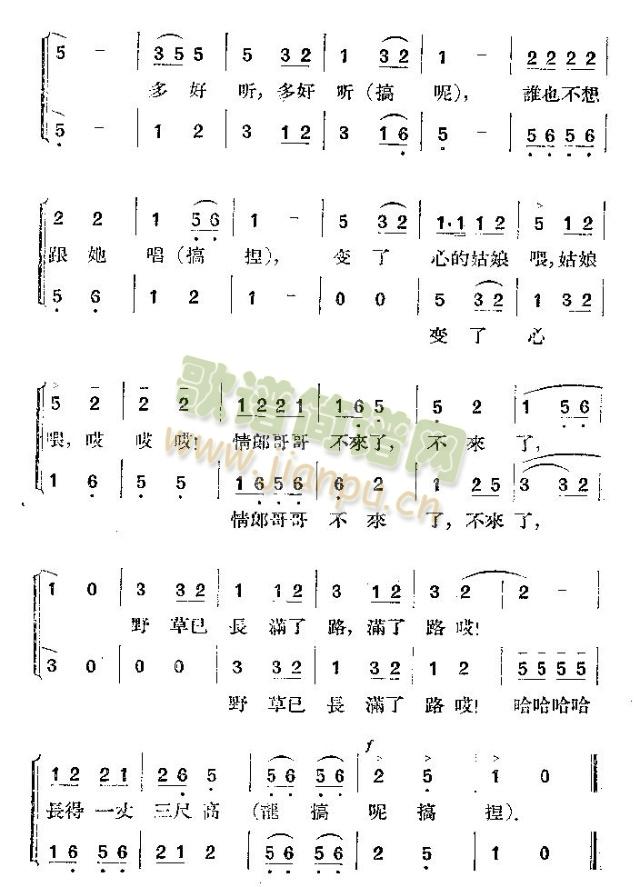 5 - | 3 5 5 | 5 3 2 | 1 3 2 | 1 - | 2 2 2 2
多好 听,多好 听(搞 呢), 誰也不想
5 - | 1 2 | 3 1 2 | 3 1 6 | 5 - | 5 6 5 6
2 2 | 1 5 6 | 1 - | 5 3 2 | 1·1 1 2 | 5 1 2
跟她 唱(搞 捏), 变了 心的姑娘 喂,姑娘
5 6 | 1 2 | 1 - | 0 0 | 5 3 2 | 1 3 2
变了 心
5 2 | 2 2 | 1 2 2 1 | 1 6 5 | 5 2 | 1 5 6
喂,哎 哎哎! 情郎哥哥 不來了, 不來 了,
1 6 | 5 5 | 1 6 5 6 | 6 2 | 1 2 5 | 3 3 2
情郎哥哥 不 來 了,不來 了,
1 0 | 3 3 2 | 1 1 2 | 3 1 2 | 3 2 | 2 -
野草已 長滿了 路,滿了 路哎!
3 0 | 0 0 | 3 3 2 | 1 3 2 | 1 2 | 5 5 5 5
野 草已 長 滿了 路哎! 哈哈哈哈
f
1 2 2 1 | 2 6 5 | 5 6 5 6 | 2 5 | 1 0
長得一丈 三尺高 (龍 搞 呢搞 捏).
1 6 5 6 | 2 1 2 | 5 6 5 6 | 2 5 | 1 0
歌谱简谱网
www.jianpu.cn